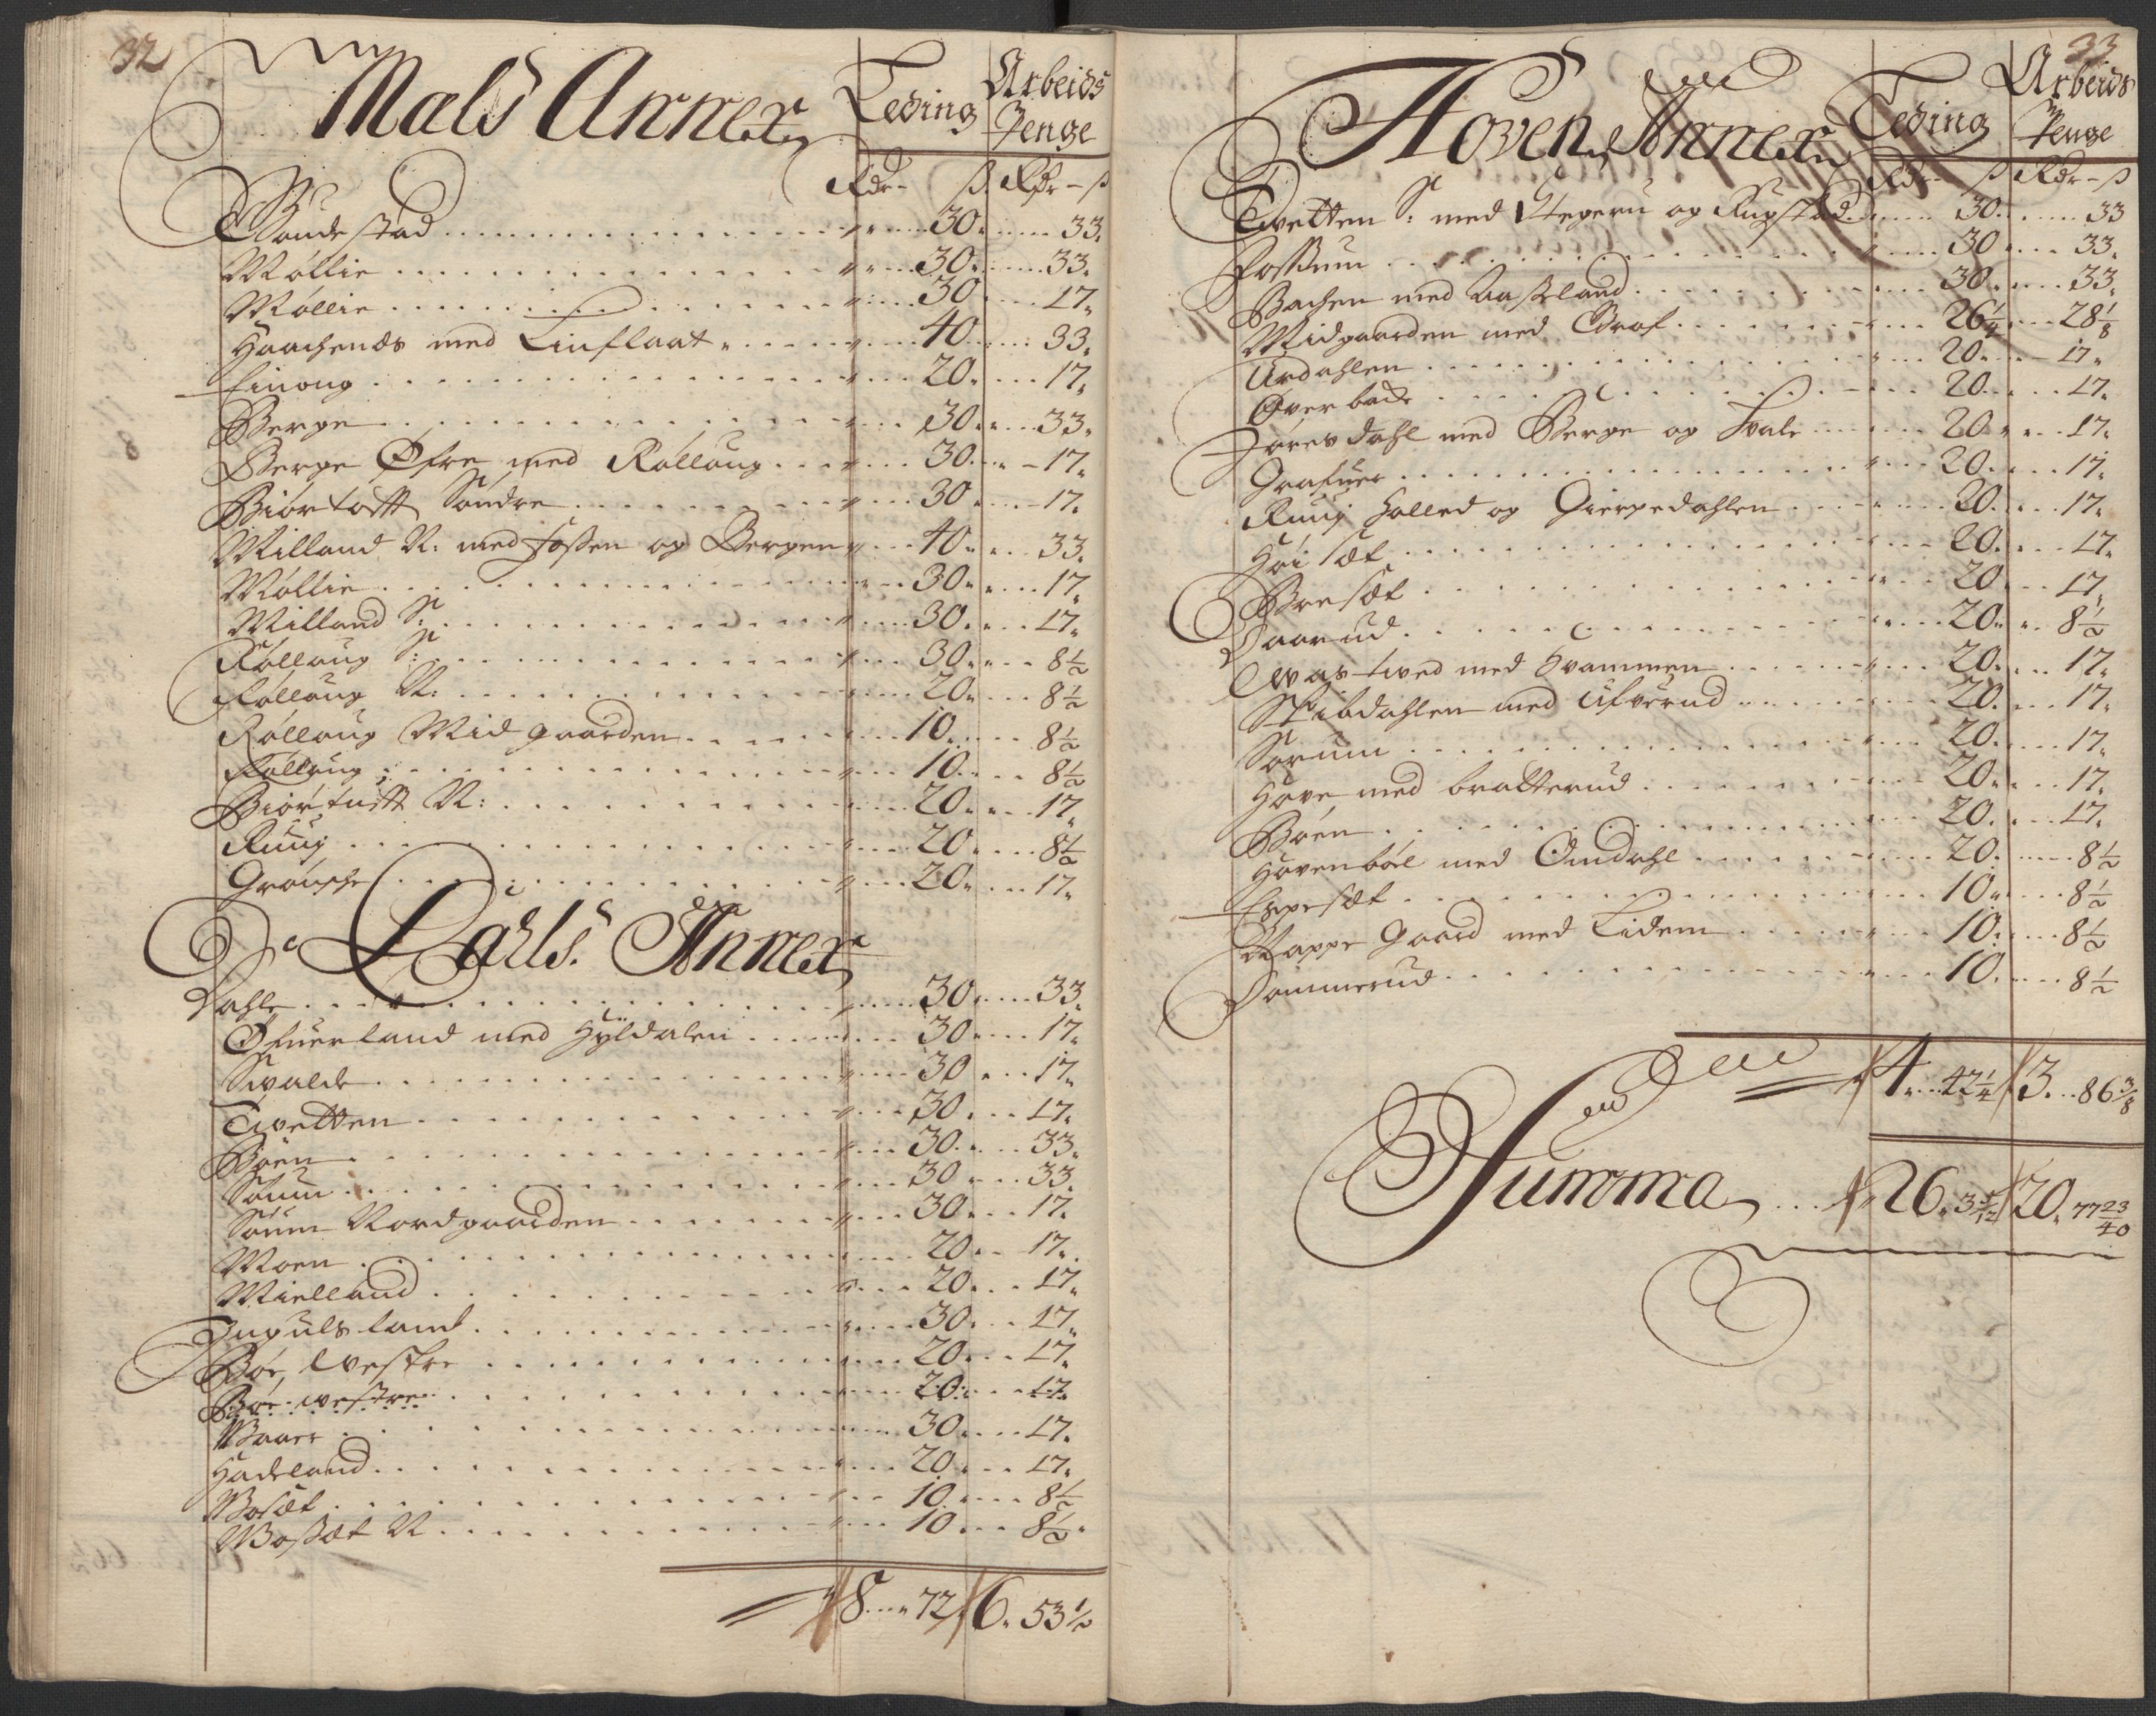 32
Mæls Annex, Leding Arbeids Penge
Rdr - ß. Rdr - ß
Baudestad 30. 33.
Møllie 30. 33.
Møllie 30 17.
Haachenæs med Linflaat 40. 33.
Einong 20. 17.
Berge 30. 33.
Berge Øfre med Rollaug 30. 17.
Biørtofft Søndre 30 17.
Milland N: med Foßen og Bergen 40. 33.
Møllie 30. 17.
Milland S: 30. 17.
Rollaug S: 30. 8½
Rollaug N: 20. 8½
Rollaug Midgaarden 10. 8½
Rollaug 10. 8½
Biørtufft N: 20. 17.
Ruuj 20. 8½
Grøusche 20. 17.
Dahls Annex
Dahle 30. 33.
Øfuerland med Hyldalen 30. 17.
Swalde 30. 17.
Twetten 30. 17.
Bøen 30. 33.
Søum 30. 33.
Søum Nordgaarden 30. 17.
Moen 20. 17.
Mielland 20. 17.
Ingulsland 30. 17.
Bøe, Westre 20. 17.
Bøe westre 20. 17.
Baaer 30. 17.
Hadeland 20. 17.
Bosæt 10. 8½
Boßæt N 10. 8½.
8. 72 6. 53½
33
Hoven Annex Leding Arbeids Penge
Rdr - ß Rdr - ß
Twetten S: med Stegeru og Rugstad 30. 33
Foßum 30. 33.
Bachen med Aaseland 30. 33.
Midgaarden med Graf 26¼ 28⅛
Urdahlen 20. 17.
Øverbøe 20. 17.
Jøresdahl med Berge og Svale 20. 17.
Grafuer 20. 17.
Ruuj Hølled og Gierpedahlen 20. 17.
Høisæt 20. 17.
Bresæt 20. 17.
Daarud 20. 8½
Wastwed med Svammen 20. 17.
Skibdahlen med Ufverud 20. 17.
Sørum 20. 17.
Hove med bratterud 20. 17.
Bøen 20. 17.
Hovenbøle med Omdahl 20. 8½
Espesæt 10. 8½
Rappe Gaard med Lidem 10. 8½
Dommerud 10. 8½
4. 42¼ 3. 86⅜
Summa 26. 3 5/12 20. 77 23/40